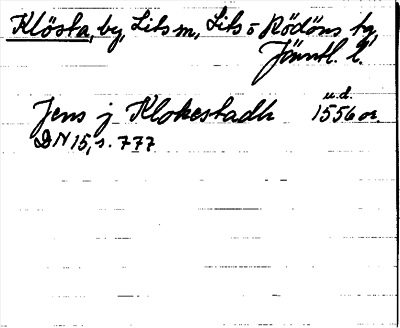 Klösta, by, Lits sn, Lits o Rödöns tg,
Jämtl. l.
u.d.
Jens j Klokestadh 1556 or.
DN 15, s. 777